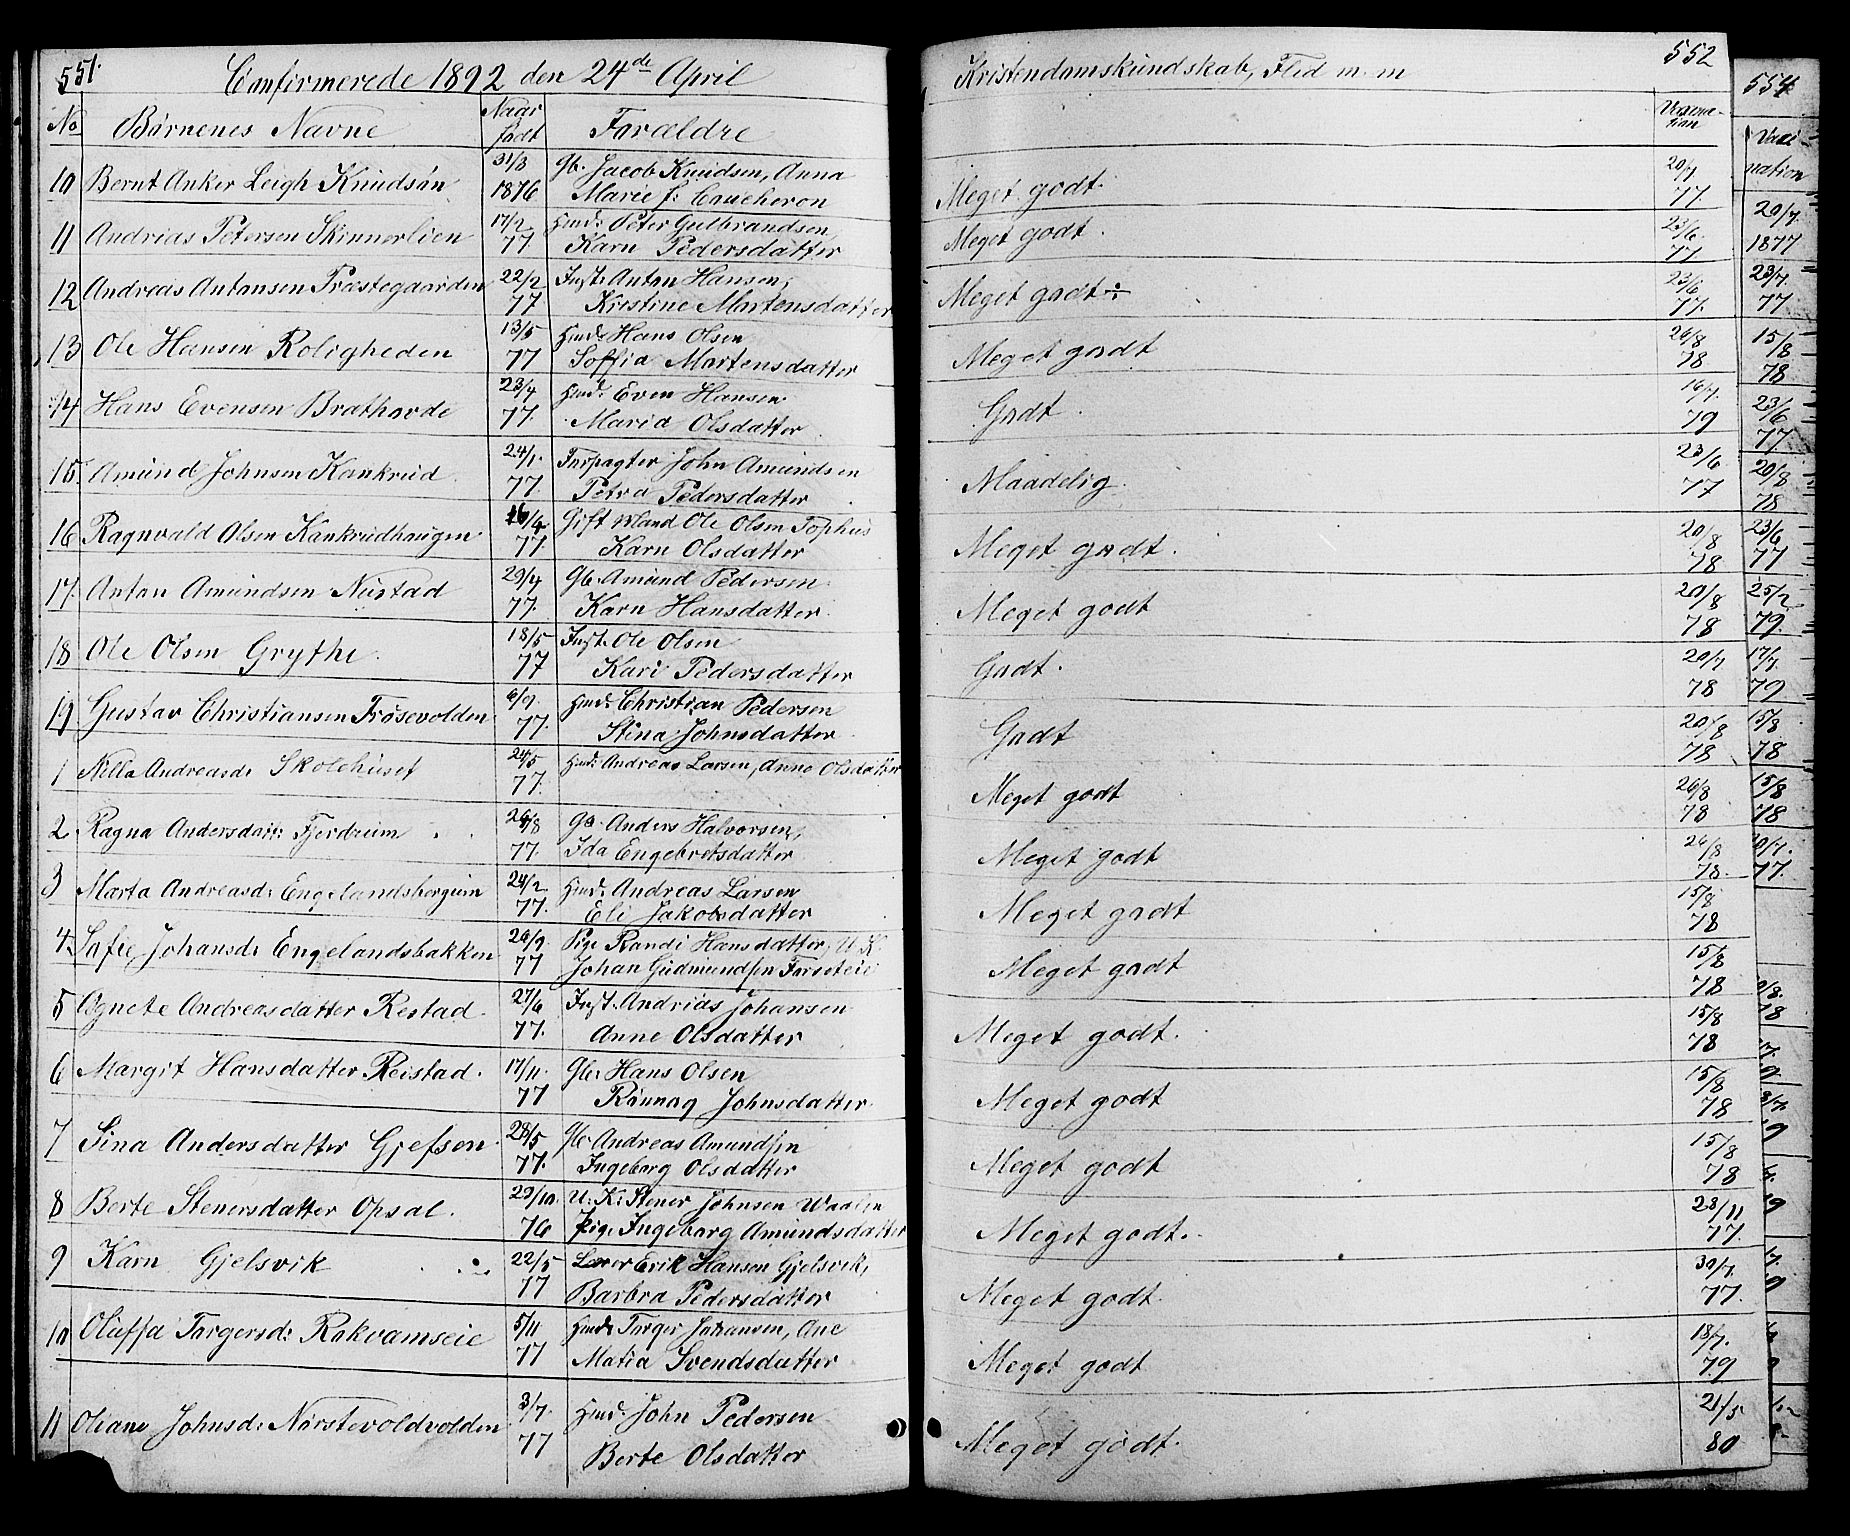 551.
Confirmerede 1892 den 24de April
No Børnenes Navne Naar født Forældre
10 Bernt Anker Leigh Knudsøn 31/3 1876 Gb. Jacob Knudsen, Anna
Marie f: Caucheron
11 Andrias Petersen Skinnerlien 17/2 77 Hmd: Peter Gulbrandsen
Karn Pedersdatter
12 Andreas Antonsen Præstegaarden 22/2 77 Inst: Anton Hansen,
Kristine Martensdatter
13 Ole Hansen Roligheden 13/5 77 Hmd: Hans Olsen
Soffia Martensdatter
14 Hans Evensen Brathovde 23/4 77. Hmd. Even Hansen
Maria Olsdatter
15. Amund Johnsen Kankrud 24/1. 77. Forpagter John Amundsen
Petra Pedersdatter
16 Ragnvald Olsen Kankrudhaugen 16/4 77. Gift Mand Ole Olsen Tophus
Karn Olsdatter
17. Anton Amundsen Nustad 29/4 77. Gb. Amund Pedersen
Karn Hansdatter.
18 Ole Olsen Grythe. 18/5 77 Inst. Ole Olsen
Kari Pedersdatter
19 Gustav Christiansen Frøsevolden 6/9. 77. Hmd: Christian Pedersen
Stina Johnsdatter
1 Nilla Andreasd: Skolehuset 24/5 77. Hmd: Andreas Larsen, Anne Olsdatter
2 Ragna Andersdatt: Fjerdrum 26/8 77. Ga. Anders Halvorsen,
Ida Engebretsdatter
3 Marta Andreasd: Engelandsbergum 24/2 77. Hmd: Andreas Larsen
Eli Jakobsdatter
4 Safie Johansd: Engelandsbakken 26/9 77 Pige Randi Hansdatter, U. K.
Johan Gudmundsen
5 Agnete Andreasdatter Restad. 27/6 77. Inst. Andrias Johansen
Anne Olsdatter
6 Margit Hansdatter Reistad. 17/11. 77 Gb: Hans Olsen
Rønnag Johnsdatter.
7 Sina Andersdatter Gjefsen. 28/5 77. Gb. Andreas Amundsen
Ingeborg Olsdatter
8 Berte Stenersdatter Opsal. 29/10. 76 U: K: Stener Johnsen Waalen
Pige Ingeborg Amundsdatter
9 Karn Gjelsvik 22/5 77 Lærer Erik Hansen Gjelsvik,
Barbra Pedersdatter
10 Oluffa Torgersd: Rokvamseie 5/11 77 Hmd: Torger Johansen, Ane
Matia Svendsdatter
11 Oliane Johnsd: Nørstevoldvolden 3/7. 77 Hmd. John Pedersen
Berte Olsdatter
552
Kristendomskundskab, Flid m. m
Vaccination
Meget godt. 20/7 77.
Meget godt. 23/6. 77
Meget godt÷ 23/6 77.
Meget godt 26/8 78
Godt. 16/7. 79
Maadelig. 23/6. 77
Meget godt. 20/8 78
Meget godt 20/8 78
Godt. 20/7 78
Godt 20/8 78
Meget godt 26/8 78
Meget godt 26/8 78.
Meget godt 15/8 78
Meget godt 15/8 78
Meget godt. 15/8 78
Meget godt 15/8 78
Meget godt 15/8 78
Meget godt. 28/11 77.
Meget godt. 30/7. 77.
Meget godt 18/7. 79
Meget godt. 21/5 80
554
Vaccination
20/7.
1877
23/7.
77
15/8
78
23/6
77
20/8
78
23/6
77
25/2
79.
17/7.
79
15/8
78
15/8
78
77.